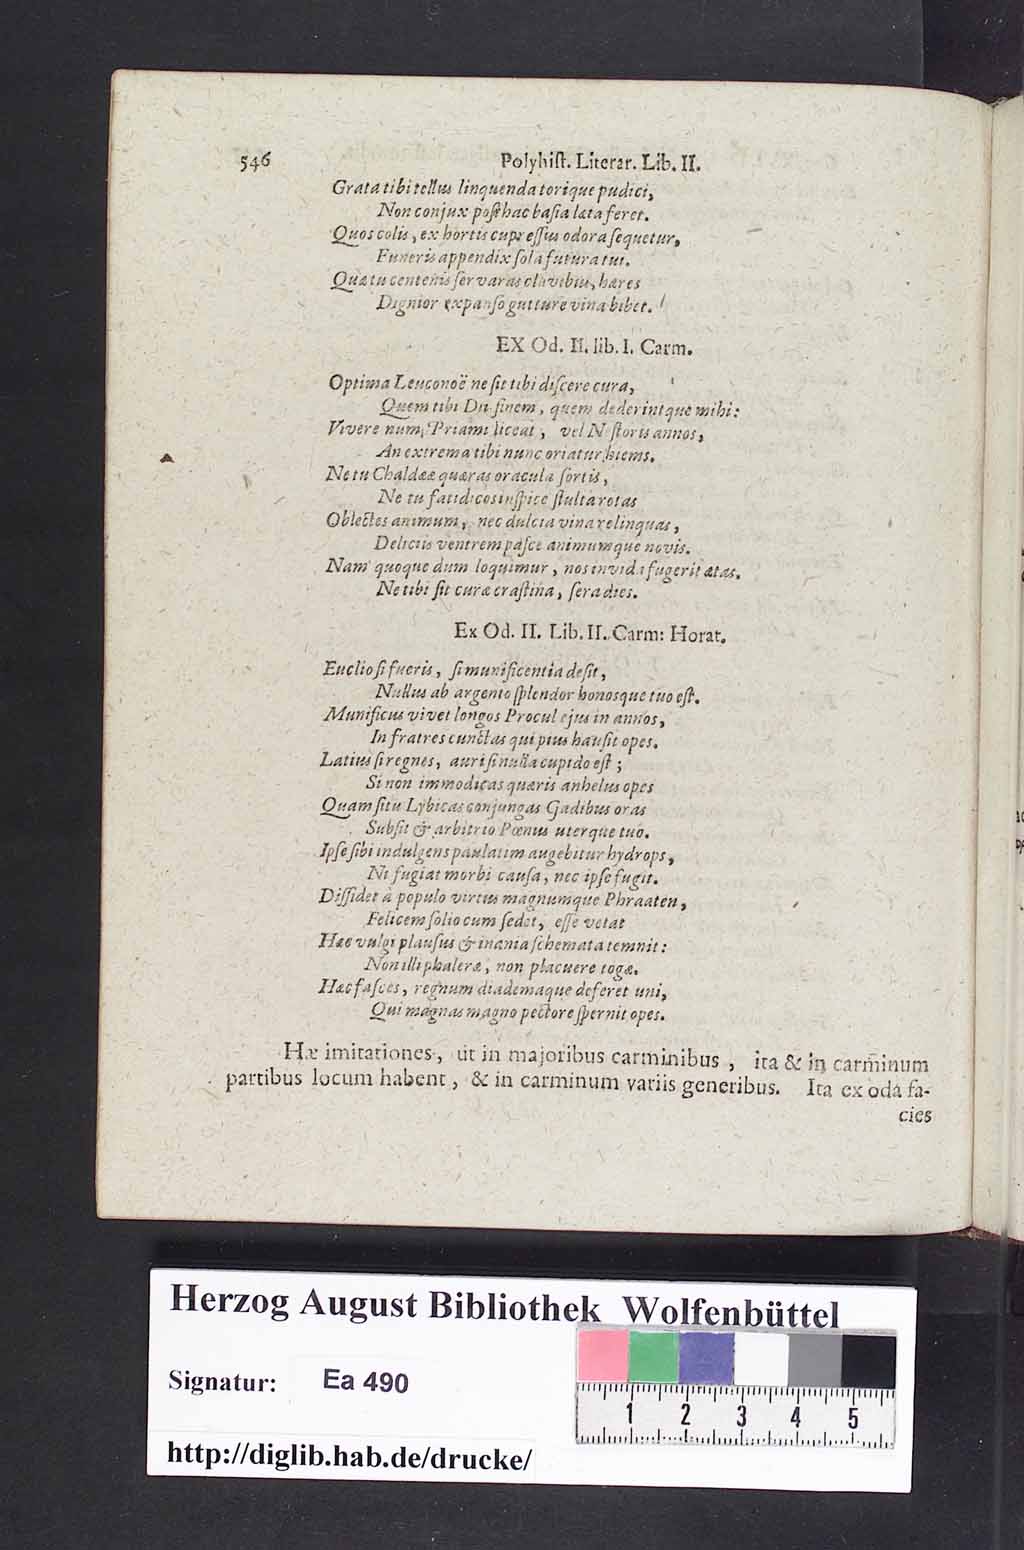 546 Polyhiſt. Literar. Lib. II.
Grata tibi tellus linquenda torique pudici,
Non conjux poſthac baſia læta feret.
Quos colis, ex hortis cupreſſus odora ſequetur,
Funeris appendix ſola futura tui.
Quæ tu centenis ſervaras clavibus, hæres
Dignior expanſo gutture vina bibet.
EX Od. II. lib. I. Carm.
Optima Leuconoë ne ſit tibi diſcere cura,
Quem tibi Dii finem, quem dederintque mihi:
Vivere num Priami liceat, vel Neſtoris annos,
An extrema tibi nunc oriatur hiems.
Ne tu Chaldææ quæras oracula ſortis,
Ne tu fatidicos inſpice ſtulta rotas
Oblectes animum, nec dulcia vina relinquas,
Deliciis ventrem paſce animumque novis.
Nam quoque dum loquimur, nos invida fugerit ætas.
Ne tibi ſit curæ craſtina, ſera dies.
Ex Od. II. Lib. II. Carm: Horat.
Euclio ſi fueris, ſi munificentia deſit,
Nullus ab argento ſplendor honosque tuo eſt.
Munificus vivet longos Procul ejus in annos,
In fratres cunctas qui pius hauſit opes.
Latius ſi regnes, auri ſi nulla cupido eſt;
Si non immodicas quæris anhelus opes
Quam ſitu Lybicas conjungas Gadibus oras
Subſit & arbitrio Pœnus uterque tuo.
Ipſe ſibi indulgens paulatim augebitur hydrops,
Ni fugiat morbi cauſa, nec ipſe fugit.
Diſſidet à populo virtus magnumque Phraaten,
Felicem ſolio cum ſedet, eſſe vetat
Hæc vulgi plauſus & inania ſchemata temnit:
Non illi phaleræ, non placuere togæ.
Hæc faſces, regnum diademaque deferet uni,
Qui magnas magno pectore ſpernit opes.
Hæ imitationes, ut in majoribus carminibus, ita & in carminum
partibus locum habent, & in carminum variis generibus. Ita ex oda fa-
cies
Herzog August Bibliothek Wolfenbüttel
Signatur: Ea 490
1 2 3 4 5
http://diglib.hab.de/drucke/